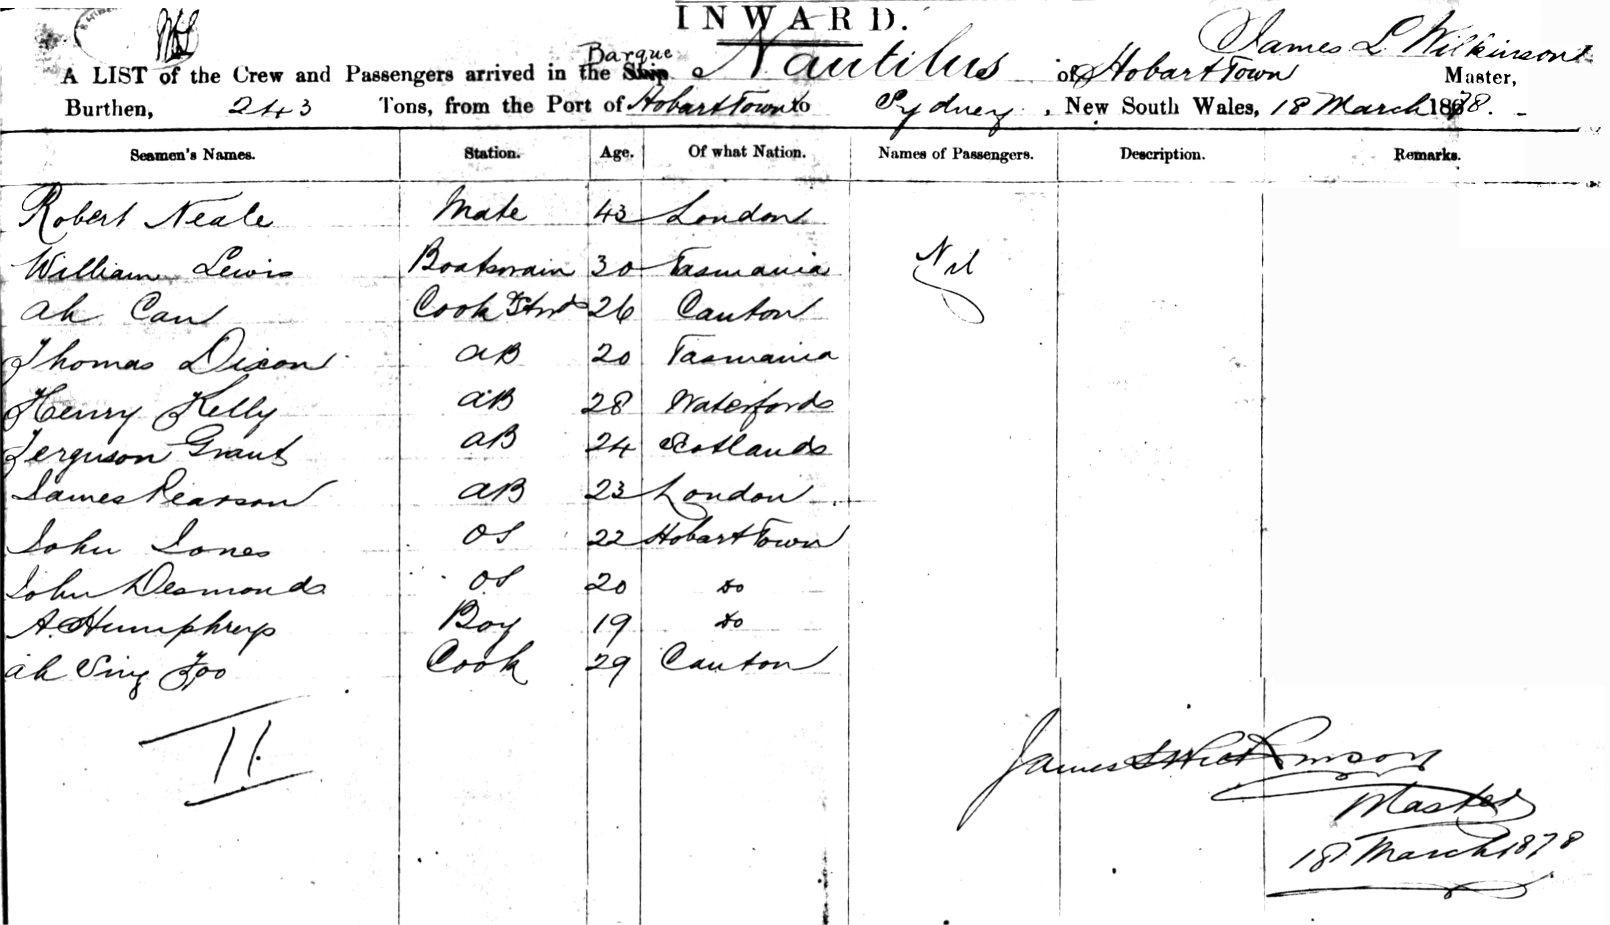 INWARD.
James L Wilkinson
Barque
A LIST of the Crew and Passengers arrived in the Ship Nautilus of Hobart Town Master,
Burthen, 243 Tons, from the Port of Hobart Town to Sydney, New South Wales, 18 March 1878.
Seamen's Names. Station. Age. Of what Nation. Names of Passengers. Description. Remarks.
Robert Neale Mate 43 London
William Lewis Boatswain 30 Tasmania Nil
Ah Can Cook & Stwd 26 Canton
Thomas Dixon AB 20 Tasmania
Henry Kelly AB 28 Waterford
Ferguson Grant AB 24 Scotland
James Pearson AB 23 London
John Jones OS 22 Hobart Town
John Desmond OS 20 do
A. Humphreys Boy 19 do
Ah Sing Foo Cook 29 Canton
11.
James L Wilkinson
Master
18 March 1878